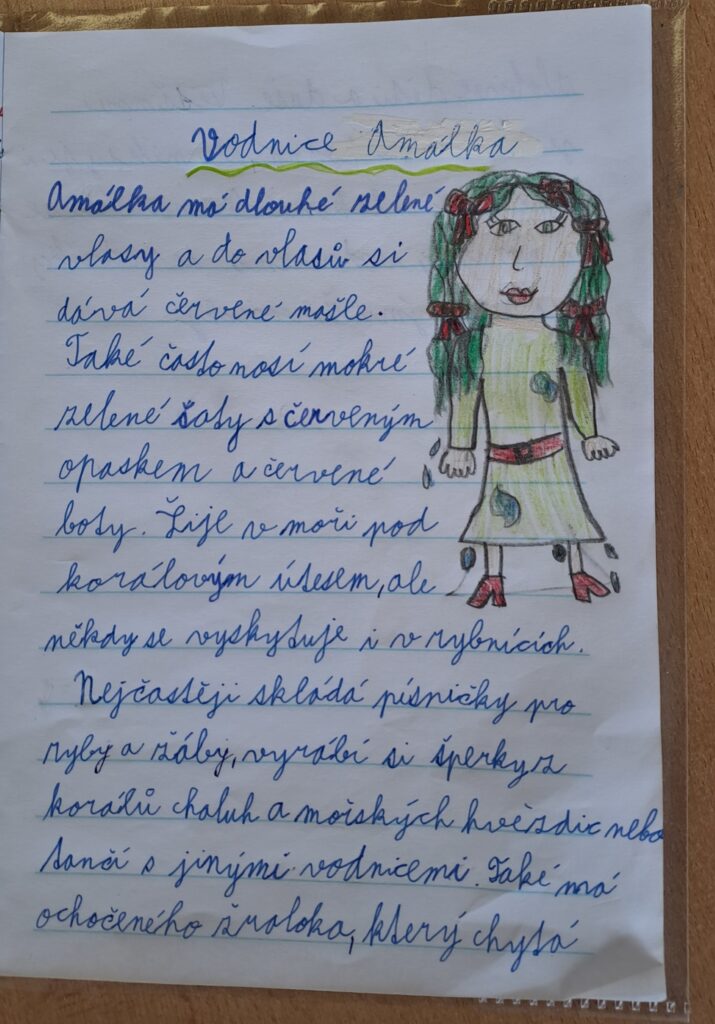 Vodnice Amálka
Amálka má dlouhé zelené
vlasy a do vlasů si
dává červené mašle.
Také často nosí mokré
zelené šaty s červeným
opaskem a červené
boty. Žije v moři pod
korálovým útesem, ale
někdy se vyskytuje i v rybnících.
Nejčastěji skládá písničky pro
ryby a žáby, vyrábí si šperky z
korálů chaluh a mořských hvězdic nebo
tančí s jinými vodnicemi. Také má
ochočeného žraloka, který chytá